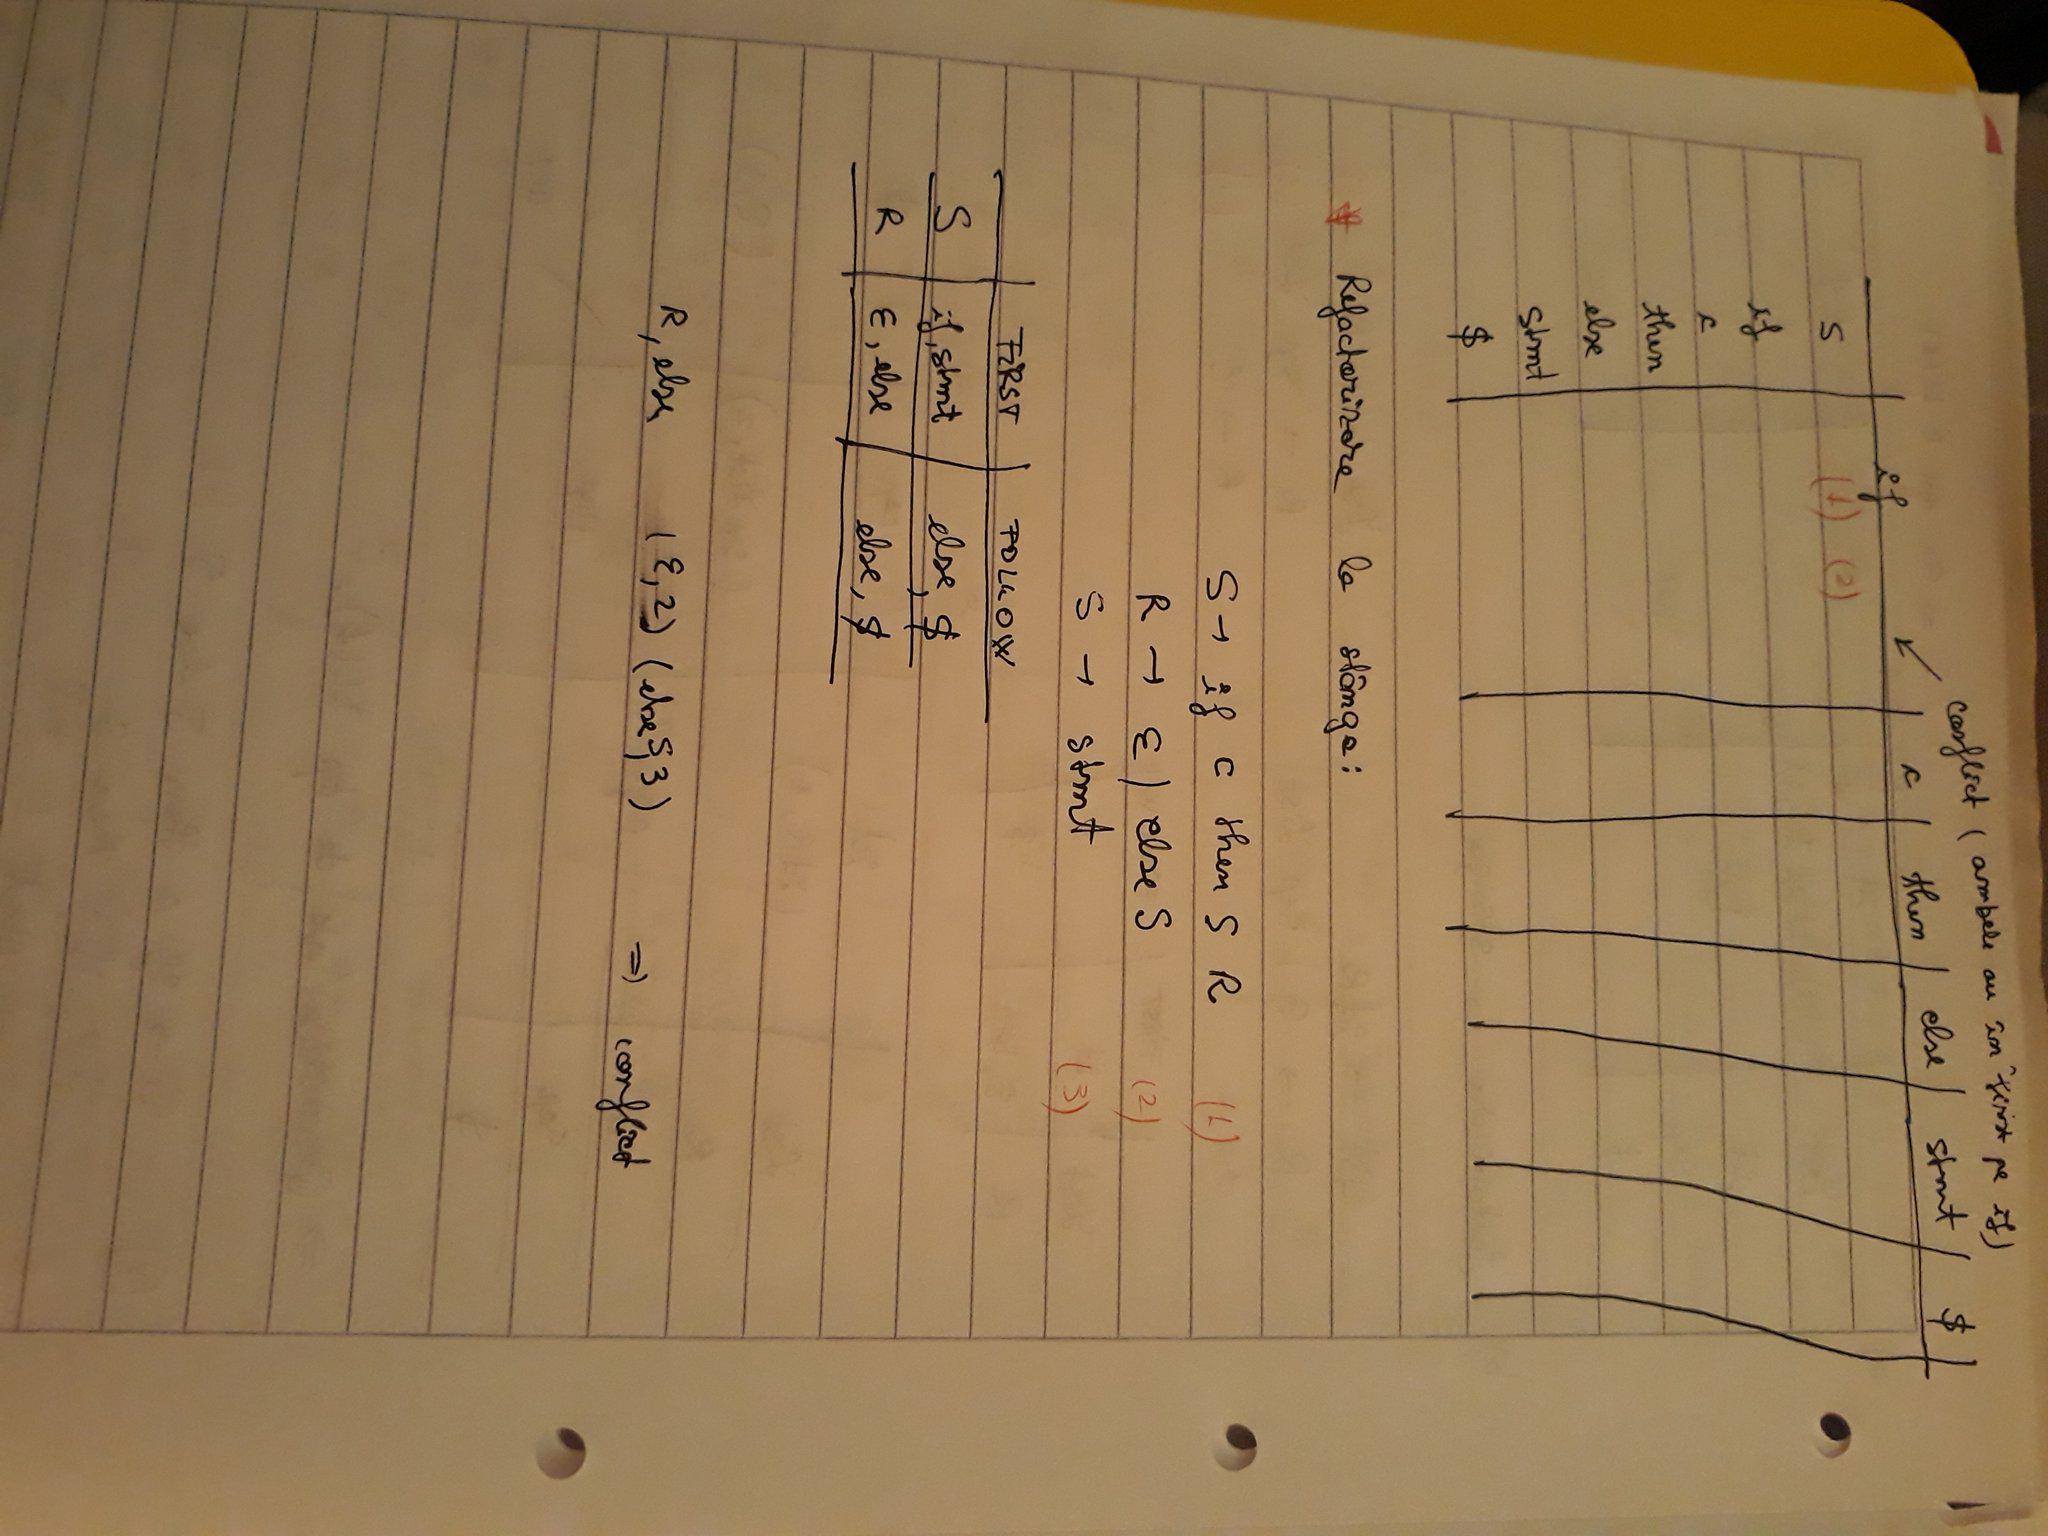 conflict (ambele au în first pe if)
if | c | then | else | stmt | $
S (1) (2)
if
c
then
else
stmt
$
* Refactorizare la stânga:
S → if c then S R (1)
R → ε | else S (2)
S → stmt (3)
FIRST | FOLLOW
S | if, stmt | else, $
R | ε, else | else, $
R, else (ε, 2) (else S, 3) => conflict